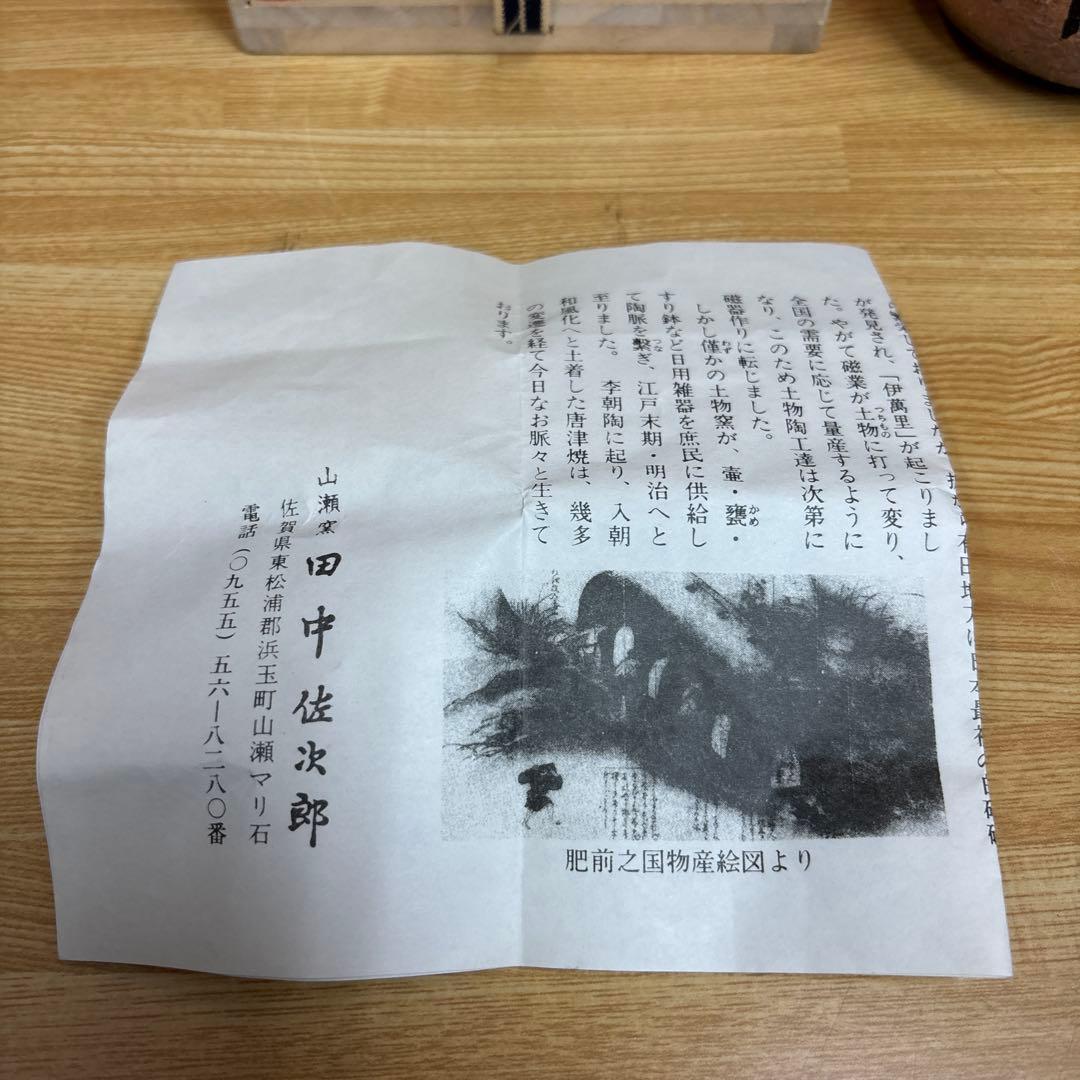 が発見され、「伊萬里」が起こりまし
た。やがて磁業が土物に打って変り、
つちもの
全国の需要に応じて量産するように
なり、このため土物陶工達は次第に
磁器作りに転じました。
しかし僅かの土物窯が、壷・甕・
わず
かめ
すり鉢など日用雑器を庶民に供給し
て陶脈を繫ぎ、江戸末期・明治へと
つな
至りました。 李朝陶に起り、入朝
和風化へと土着した唐津焼は、幾多
の変遷を経て今日なお脈々と生きて
おります。
肥前之国物産絵図より
山瀬窯 田中佐次郎
佐賀県東松浦郡浜玉町山瀬マリ石
電話(〇九五五)五六―八二八〇番